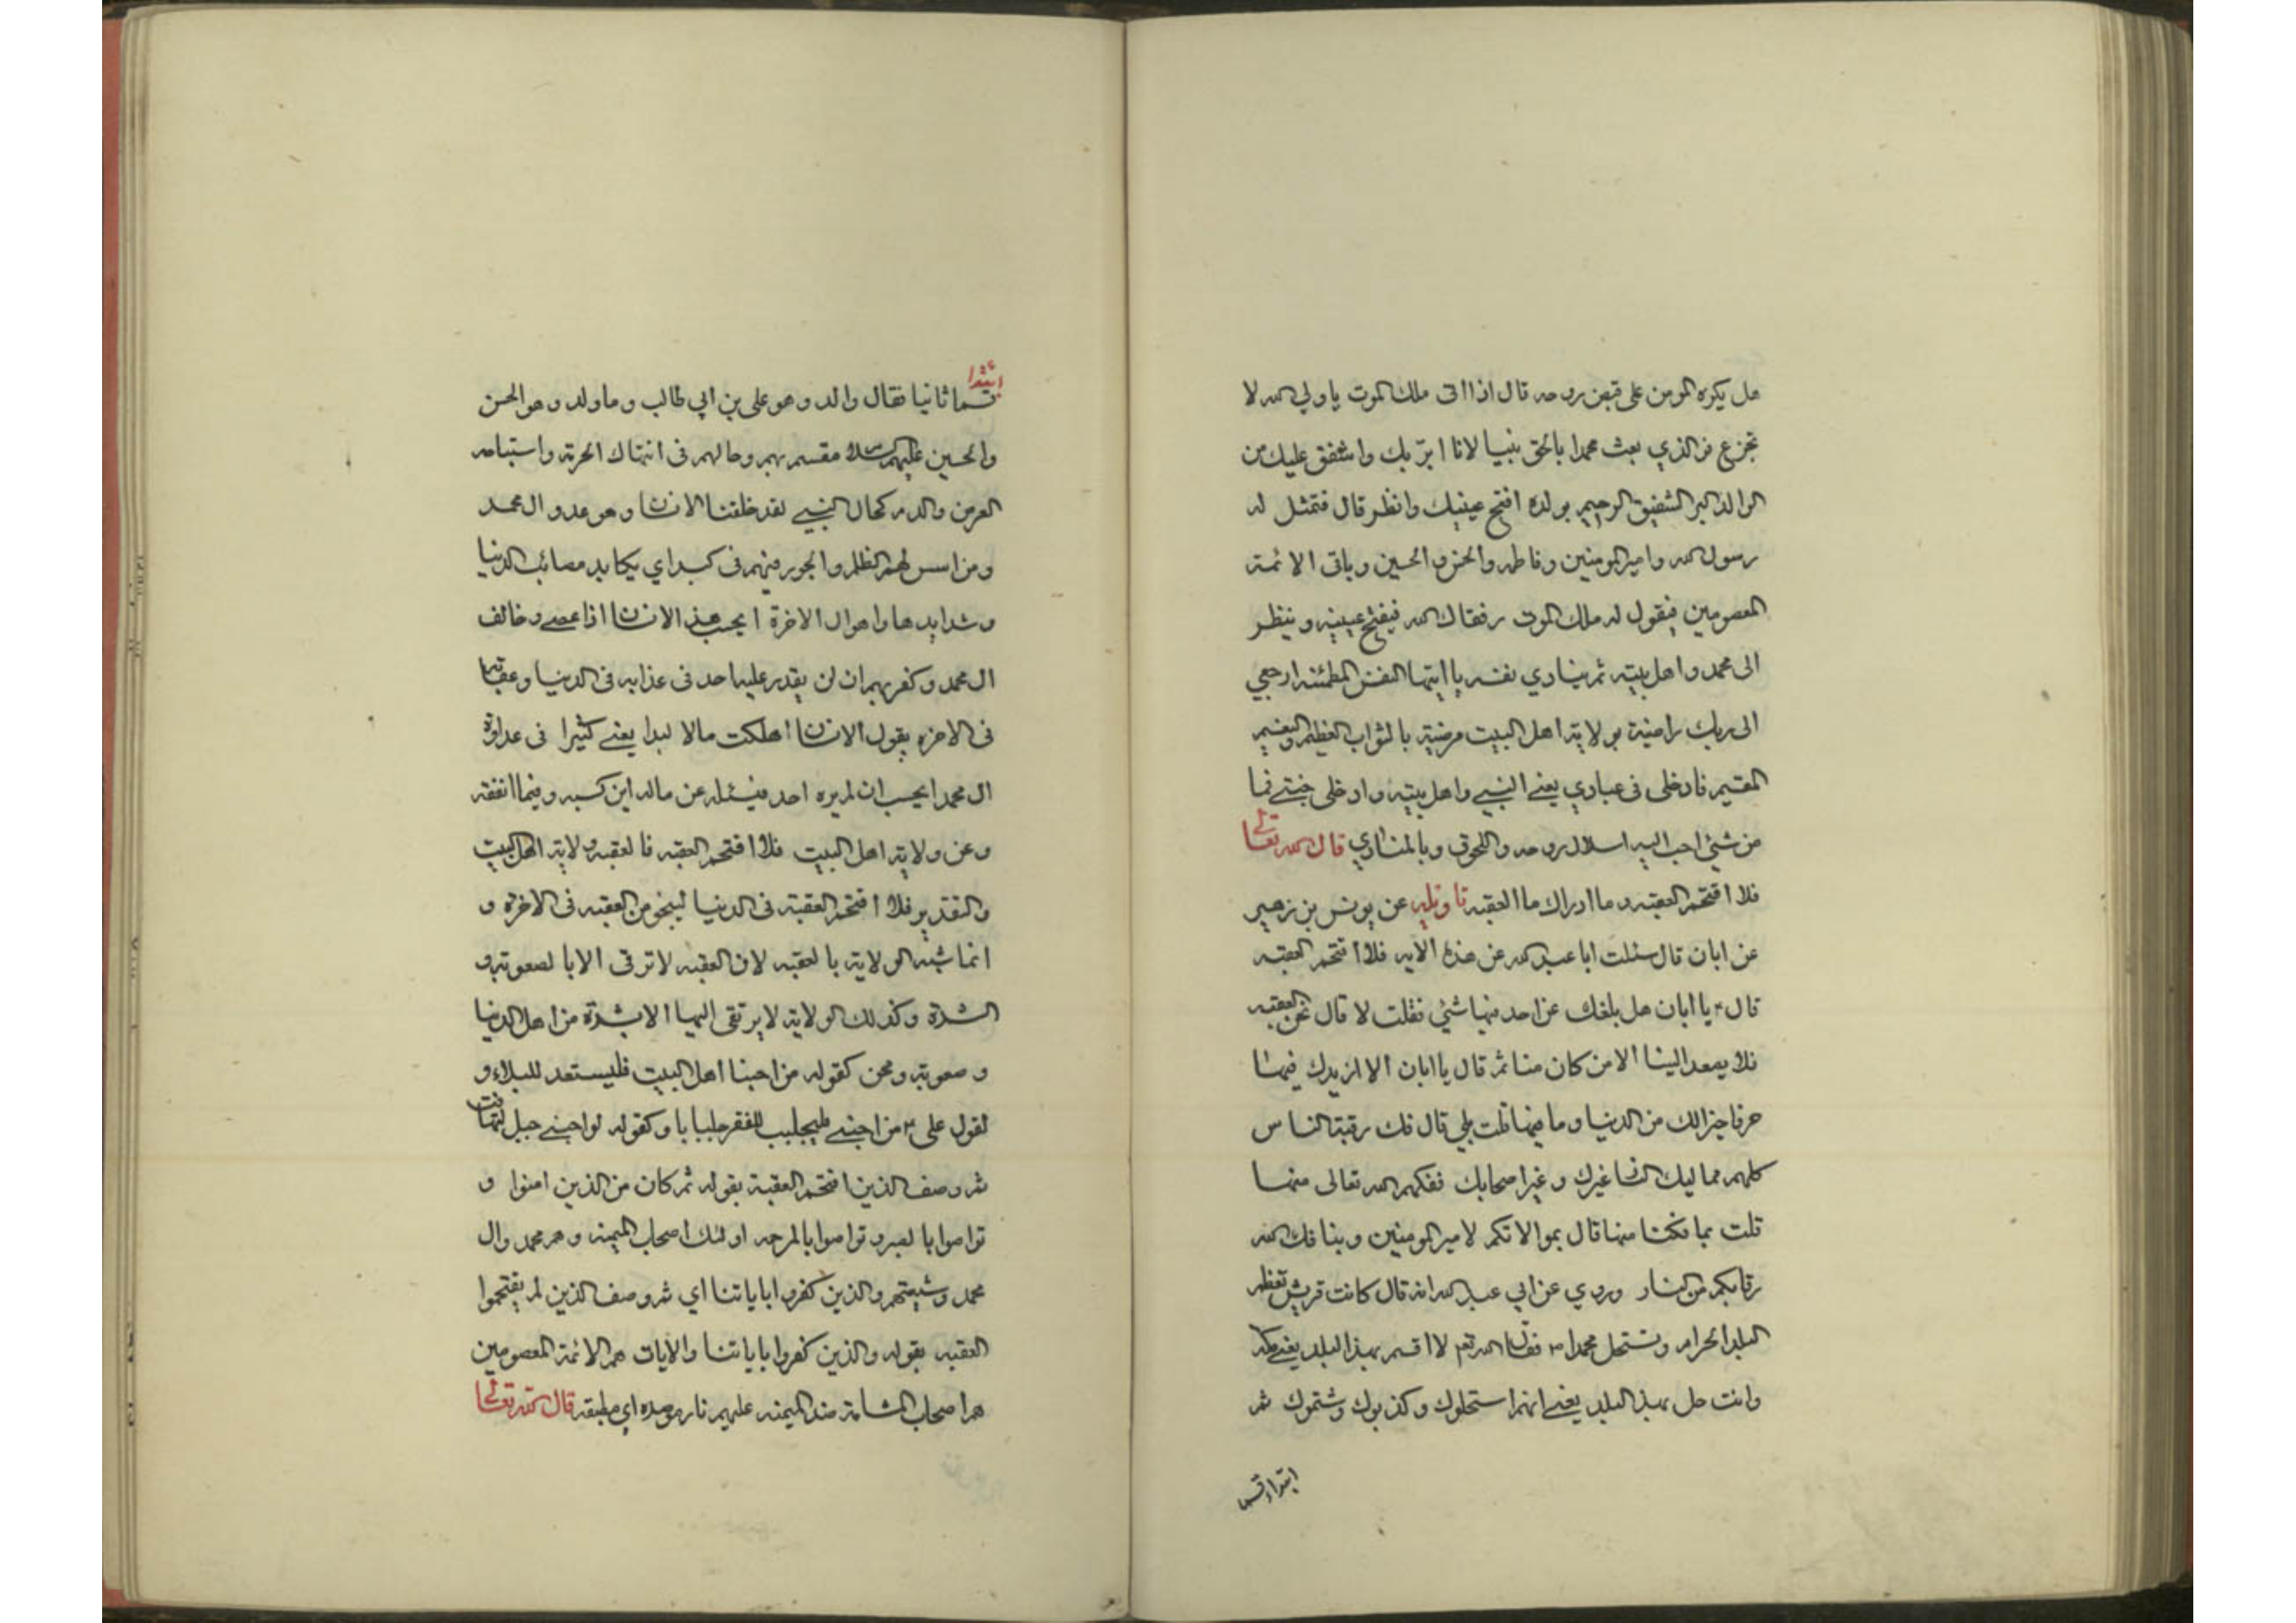 هل يكره المومن على قبض روحه قال اذا اتى ملك الموت يا ولي الله لا
تجزع فو الذي بعث محمدا بالحق نبيا لانا ابرّ بك واشفق عليك من
الوالد البر الشفيق الرحيم بولده افتح عينيك وانظر قال فتمثل له
رسول الله وامير المومنين وفاطمه والحسن والحسين وباقى الائمة
المعصومين فيقول له ملك الموت رفقاك الله فيفتح عينيه وينظر
الى محمد واهل بيته ثم ينادي نفسه يا ايتها النفس المطمئنه ارجعي
الى ربك راضية بولاية اهل البيت مرضية بالثواب العظيم والنعيم
المقيم فادخلى فى عبادي يعنے النبيے واهل بيته وادخلى جنتے فما
من شئ احب اليه اسلال روحه واللحوق وبالمنادي قال الله تعالى
فلا اقتحم العقبه وما ادراك ما العقبه تاويله عن يونس بن زهير
عن ابان قال سئلت ابا عبد الله عن هذه الايه فلا اقتحم العقبه
قال ۴ يا ابان هل بلغك عن احد فيها شئ فقلت لا قال نحن العقبه
فلا يصعد الينا الا من كان منا ثم قال يا ابان الا ازيدك فيها
حرفا خيرا لك من الدنيا وما فيها قلت بلي قال فك رقبة الناس
كلهم مماليك النار غيرك وغير اصحابك ففكهم الله تعالى منها
قلت بما فكنا منها قال بموالاتكم لامير المومنين وبنا فك الله
رقابكم من النار وروي عن ابي عبد الله انه قال كانت قريش تعظم
البلد الحرام وتستحل محمدا ص فقال الله تع لا اقسم بهذا البلد يعنے مكه
وانت حل بهذا البلد يعنے انهم استحلوك وكذبوك وشتموك ثم
ابتداء قسما
ابتدا
قسما ثانيا فقال والد وهو على بن ابي طالب وما ولد وهو الحسن
والحسين عليهم السلام مقسم بهم وحالهم فى انتهاك الحرمة واستباحه
العرض والدم كحال النبيے لقد خلقنا الانسان وهو عدو ال محمد
ومن اسس لهم الظلم والجور فيهم فى كبد اي يكابد مصائب الدنيا
وشدايدها واهوال الاخرة ايحسب هذا الانسان اذا عصے وخالف
ال محمد وكفر بهم ان لن يقدر عليه احد فى عذابه فى الدنيا وعقابها
فى الاخره يقول الانسان اهلكت مالا لبدا يعنے كثيرا فى عداوة
ال محمد ايحسب ان لم يره احد فيسئله عن ماله اين كسبه وفيما انفقه
وعن ولاية اهل البيت فلا اقتحم العقبه فالعقبه ولاية اهل البيت
والتقدير فلا اقتحم العقبة فى الدنيا لينجو من العقبه فى الاخرة و
انما شبّه الولاية بالعقبه لان العقبه لا ترقى الا با لصعوبة و
الشدة وكذلك الولاية لا يرتقى اليها الا بشدة من اهل الدنيا
وصعوبة ومحن كقوله من احبنا اهل البيت فليستعد للبلاء و
لقول على ۴ من احبنے فليجلبب للفقر جلبابا وكقوله لو احبنے جبل لتهافت
ثم وصف الذين اقتحم العقبة بقوله ثم كان من الذين امنوا و
تواصوا بالصبر وتواصوا بالمرحمه اولئك اصحاب الميمنه وهم محمد وال
محمد وشيعتهم والذين كفروا باياتنا اي ثم وصف الذين لم يقتحموا
العقبه بقوله والذين كفروا باياتنا والايات هم الائمة المعصومين
هم اصحاب المشامة ضد الميمنه عليهم نار موصده اي مطبقه قال الله تعالى